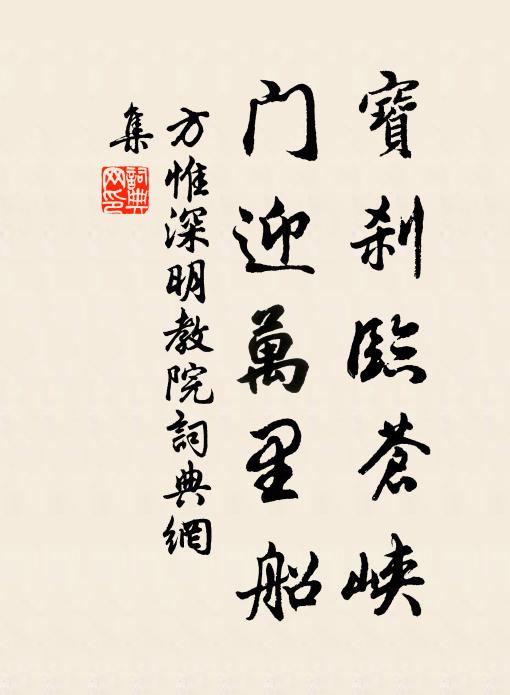 寶刹臨蒼峽
門迎萬里船
方惟深明教院詞典網
集
詞典
网印